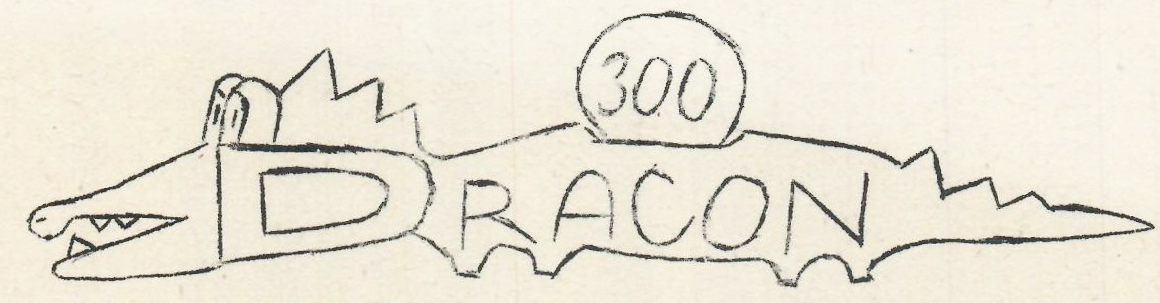 300
DRACON